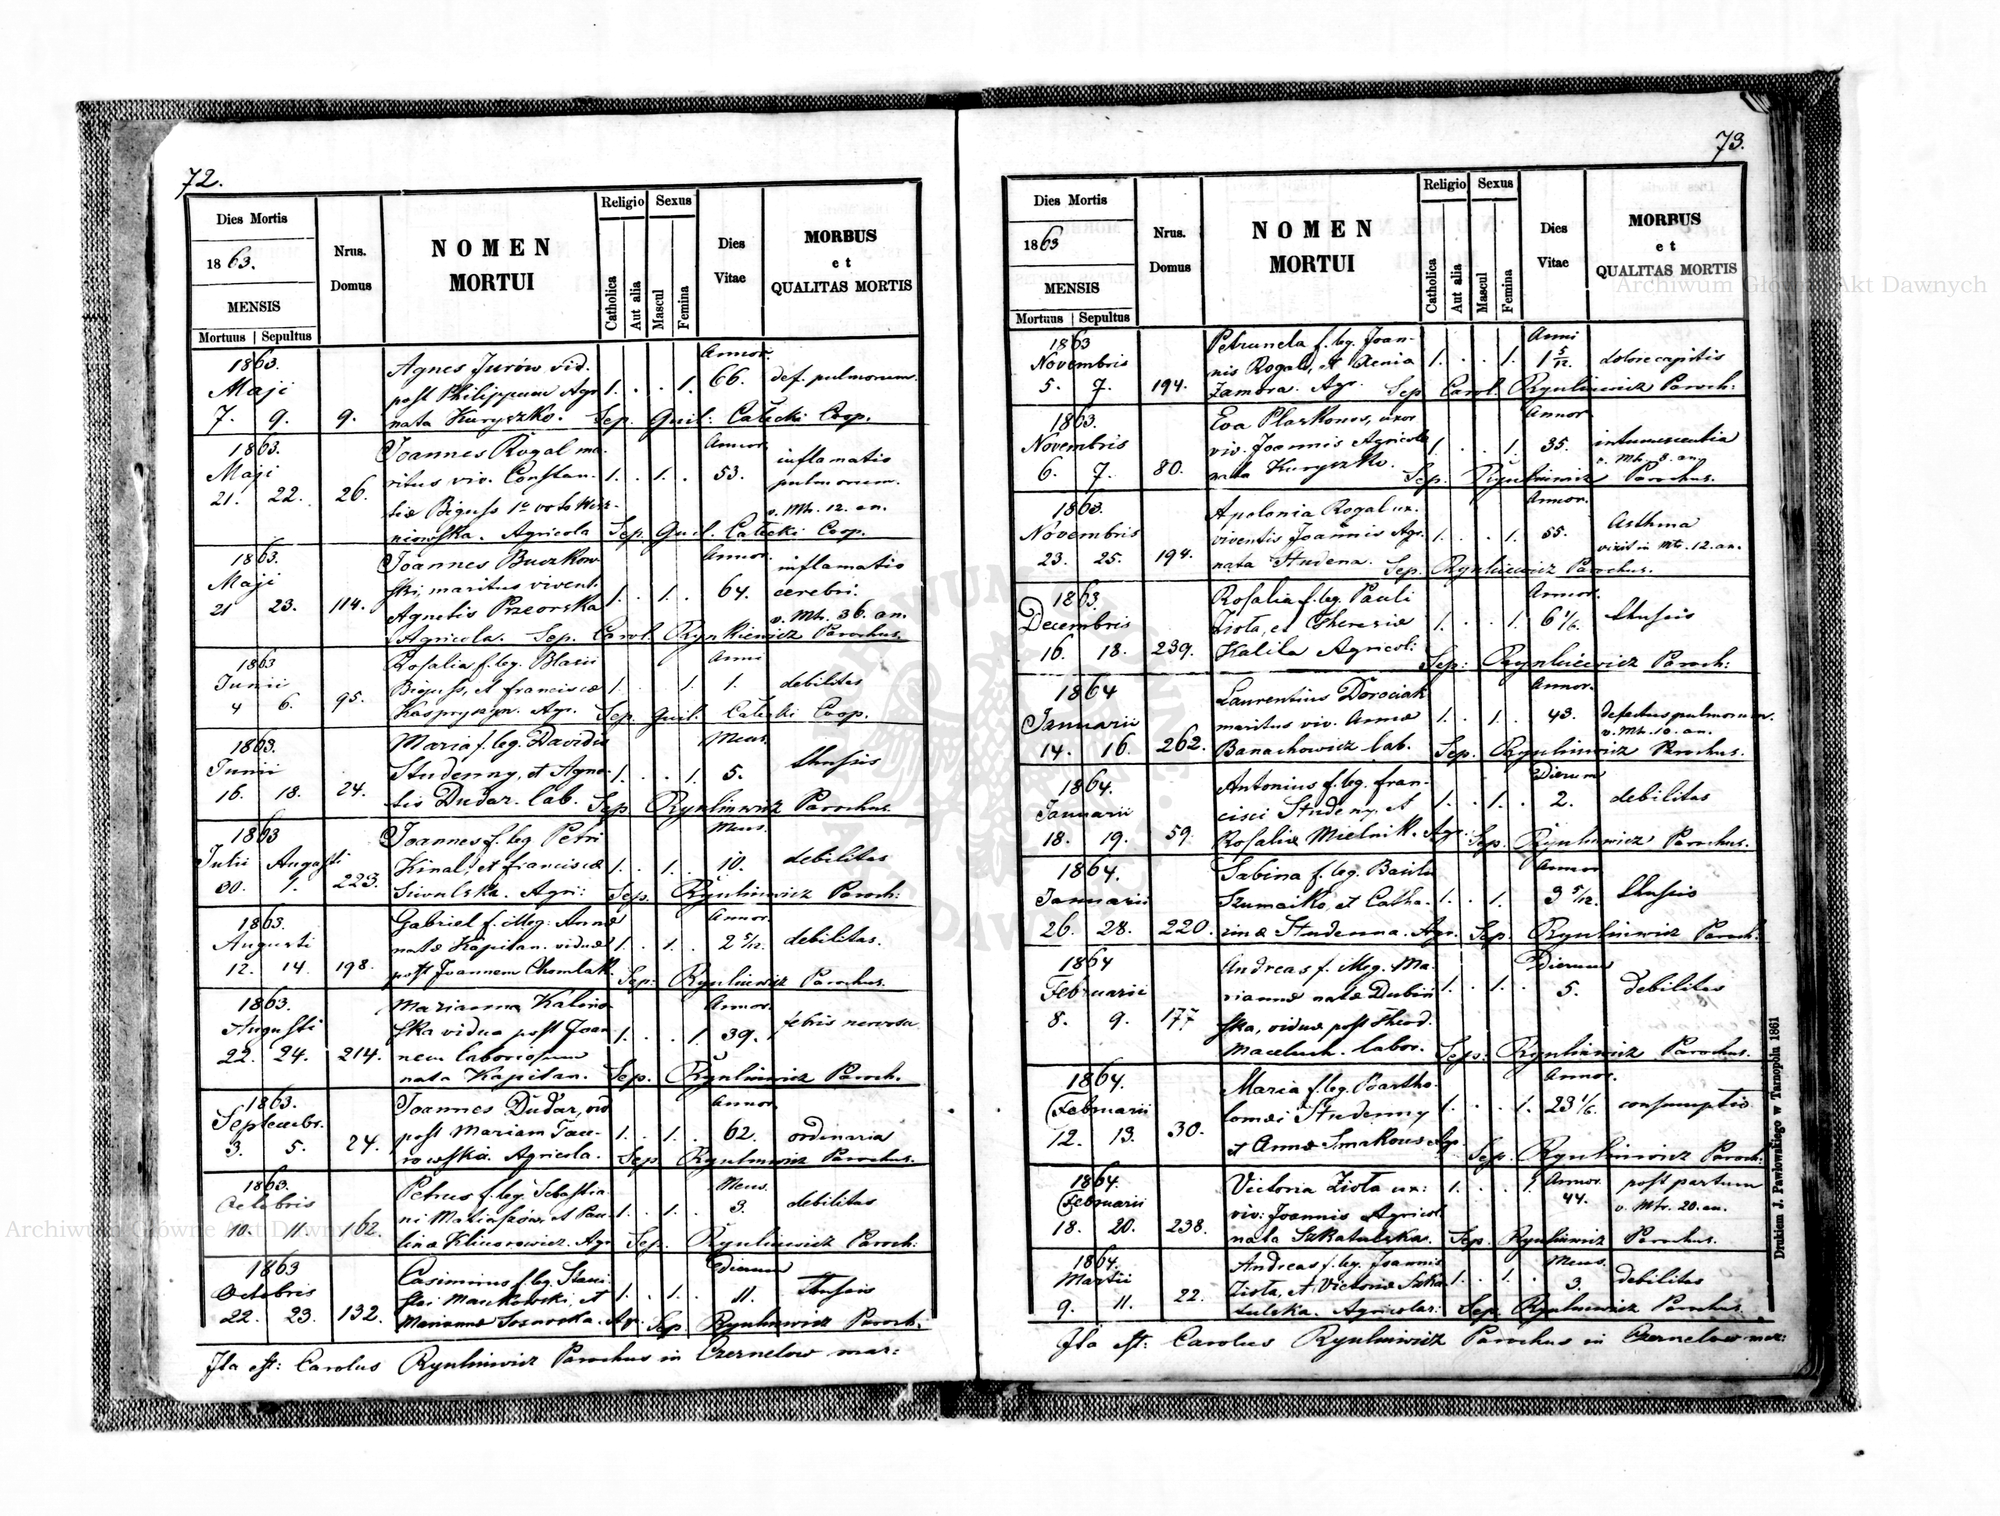 72.
Dies Mortis
1863.
MENSIS
Mortuus | Sepultus
Nrus.
Domus
NOMEN
MORTUI
Religio
Catholica
Aut alia
Sexus
Mascul
Femina
Dies
Vitae
MORBUS
et
QUALITAS MORTIS
1863. Agnes Jurów vid. Annor.
Maji post Philippum Agr. 1. . . 1. 66. def. pulmonum.
7. 9. 9. nata Kuryszko. Sep. Guil: Całecki Coop.
1863. Joannes Rogal ma- Annor. inflamatio
Maji ritus viv. Constan- 1. . 1. . 53. pulmonum.
21. 22. 26. tiæ Biguss 1o voto v. Mtr. 12. an.
niowska. Agricola Sep. Guil. Całecki Coop.
1863. Joannes Buczkow- Annor. inflamatio
Maji ski, maritus vivent. 1. . 1. . 64. cerebri.
21 23. 114. Agnetis Przeorska v. Mtr. 36. an.
Agricola. Sep. Carol. Rynkiewicz Parochus.
1863 Rosalia f. leg. Blasii Anni
Junii Biguss, et Franciscæ 1. . . 1. 1. debilitas
4 6. 95. Kaspryszyn. Agr. Sep. Guil. Całecki Coop.
1863. Maria f. leg. Davidis Mens.
Junii Studenny, et Agne- 1. . . 1. 5. thussis
16. 18. 24. tis Dudar. lab. Sep. Rynkiewicz Parochus.
1863 Joannes f. leg. Petri Mens.
Julii Augusti Kinal, et Franciscæ 1. . 1. . 10. debilitas
30. 1. 223. Siwulska. Agri: Sep. Rynkiewicz Paroch:
1863. Gabriel f. illeg. Annæ Annor.
Augusti natæ Kapitan. viduæ 1. . 1. . 2 5/12. debilitas.
12. 14. 198. post Joannem Chomlak. Sep: Rynkiewicz Parochus.
1863. Marianna Kalino- Annor.
Augusti ska vidua post Joan- 1. . . 1. 39. febris nervosa
22. 24. 214. nem laboriosum
nata Kapitan. Sep. Rynkiewicz Paroch.
1863. Joannes Dudar, vid. Annor.
Septembr. post Mariam Tau- 1. . 1. . 62. ordinaria
3. 5. 24. rowska. Agricola. Sep. Rynkiewicz Parochus.
1863. Petrus f. leg. Sebastia- Mens.
Octobris ni Matiaszów, et Pau- 1. . 1. . 3. debilitas
10. 11. 162. linæ Klimowicz. Agr. Sep. Rynkiewicz Paroch:
1863 Casimirus f. leg. Stani- Dierum
Octobris slai Mankowski, et 1. . 1. . 11. thussis
22. 23. 132. Mariannæ Sosnowska. Agr. Sep. Rynkiewicz Paroch:
Ita est: Carolus Rynkiewicz Parochus in Czernelow maz:
73.
Dies Mortis
1863
MENSIS
Mortuus | Sepultus
Nrus.
Domus
NOMEN
MORTUI
Religio
Catholica
Aut alia
Sexus
Mascul
Femina
Dies
Vitae
MORBUS
et
QUALITAS MORTIS
1863 Petrunela f. leg. Joan- Anni
Novembris nis Rogal, et Xenia 1. . . 1. 1 5/12. dolore capitis
5. 7. 194. Zamora. Agr. Sep. Carol. Rynkiewicz Paroch:
1863. Eva Plaskonos, uxor Annor.
Novembris viv. Joannis Agricolæ 1. . . 1. 35. intumescentia
6. 7. 80. nata Kuryszko. v. Mtr. 8. an.
Sep. Rynkiewicz Parochus.
1863. Apolonia Rogal ux. Annor.
Novembris viventis Joannis Agr. 1. . . 1. 55. Asthma
23. 25. 194. nata Studena. vixit in Mtr. 12. an.
Sep. Rynkiewicz Parochus.
1863. Rosalia f. leg. Pauli Annor.
Decembris Ziota, et Theresiæ 1. . . 1. 6 1/6. thussis
16. 18. 239. Kalita Agricol: Sep: Rynkiewicz Paroch:
1864 Laurentius Dorociak Annor.
Januarii maritus viv. Annæ 1. . 1. . 43. defectus pulmonum.
14. 16. 262. Banachowicz lab. v. Mtr. 10. an.
Sep. Rynkiewicz Parochus.
1864. Antonius f. leg. Fran- Dierum
Januarii cisci Studeny, et 1. . 1. . 2. debilitas
18. 19. 59. Rosaliæ Mielnik. Agr. Sep. Rynkiewicz Parochus.
1864. Sabina f. leg. Basilii Annor.
Januarii Szumaiko, et Catha- 1. . 1. . 3 5/12. thussis
26. 28. 220. rinæ Studenna. Agr. Sep. Rynkiewicz Paroch:
1864 Andreas f. illeg. Ma- Dierum
Februarii riannæ natæ Dubin- 1. . 1. . 5. debilitas
8. 9. 177 ska, viduæ post Theod.
Maceluch. labor. Sep: Rynkiewicz Parochus.
1864. Maria f. leg. Bartho- Annor.
Februarii lomei Studenny 1. . . 1. 23 1/6. consumptio
12. 13. 30. et Annæ Smakous Agr. Sep. Rynkiewicz Paroch:
1864. Victoria Ziota ux: 1. . . 1. Annor. post partum
Februarii viv: Joannis Agricol. 44. v. Mtr. 20. an.
18. 20. 238. nata Szkatulska. Sep. Rynkiewicz Parochus.
1864. Andreas f. leg. Joannis Mens.
Martii Ziota, et Victoriæ Szka- 1. . 1. . 3. debilitas
9. 11. 22. tulska. Agricolar: Sep. Rynkiewicz Parochus.
Ita est: Carolus Rynkiewicz Parochus in Czernelow maz:
Drukiem J. Pawłowskiego w Tarnopolu 1861
Archiwum Główne Akt Dawnych
Archiwum Główne Akt Dawnych
ARCHIWUM GŁÓWNE AKT DAWNYCH